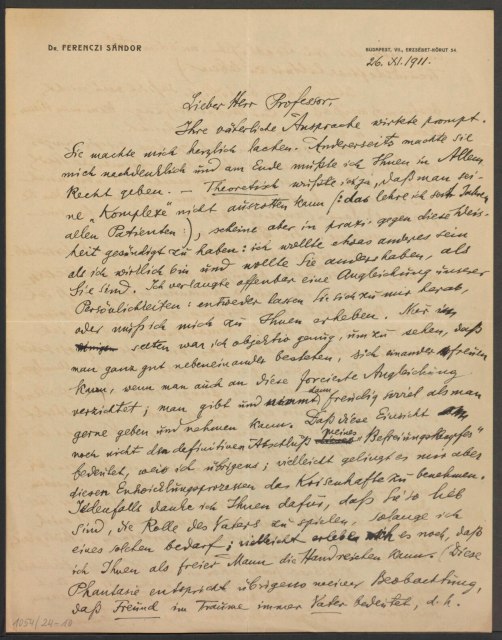 Dr. FERENCZI SÁNDOR
BUDAPEST, VII., ERZSÉBET-KÖRUT 54.
26. XI. 1911.
Lieber Herr Professor,
Ihre väterliche Ansprache wirkte prompt.
Sie machte mich herzlich lachen. Andererseits machte sie
mich nachdenklich und am Ende mußte ich Ihnen in Allem
Recht geben. — Theoretisch wußte ich ja, daß man sei-
ne „Komplexe" nicht ausrotten kann (: das lehre ich seit Jahren
allen Patienten :), scheine aber in praxi gegen diese Weis-
heit gesündigt zu haben: ich wollte etwas anderes sein
als ich wirklich bin und wollte Sie anders haben, als
Sie sind. Ich verlangte offenbar eine Angleichung unserer
Persönlichkeiten: entweder lassen Sie sich zu mir herab,
oder muß ich mich zu Ihnen erheben. Nur
selten war ich objektiv genug, um zu sehen, daß
man ganz gut nebeneinander bestehen, sich einander freuen
kann, wenn man auch an diese forcierte Angleichung
verzichtet; man gibt und nimmt dann freudig soviel als man
gerne geben und nehmen kann. Daß diese Einsicht
noch nicht den definitiven Abschluß meines „Befreiungskampfes"
bedeutet, weiß ich übrigens; vielleicht gelingt es mir aber
diesen Entwicklungsprozessen das Krisenhafte zu benehmen.
Jedenfalls danke ich Ihnen dafür, daß Sie so lieb
sind, die Rolle des Vaters zu spielen, solange ich
eines solchen bedarf; vielleicht erlebe ich es noch, daß
ich Ihnen als freier Mann die Hand reichen kann. (Diese
Phantasie entspricht übrigens meiner Beobachtung,
daß Freund im Traume immer Vater bedeutet, d. h.
1054/24-10